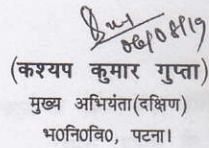 06/08/19
(कश्यप कुमार गुप्ता)
मुख्य अभियंता(दक्षिण)
भ०नि०वि०, पटना।